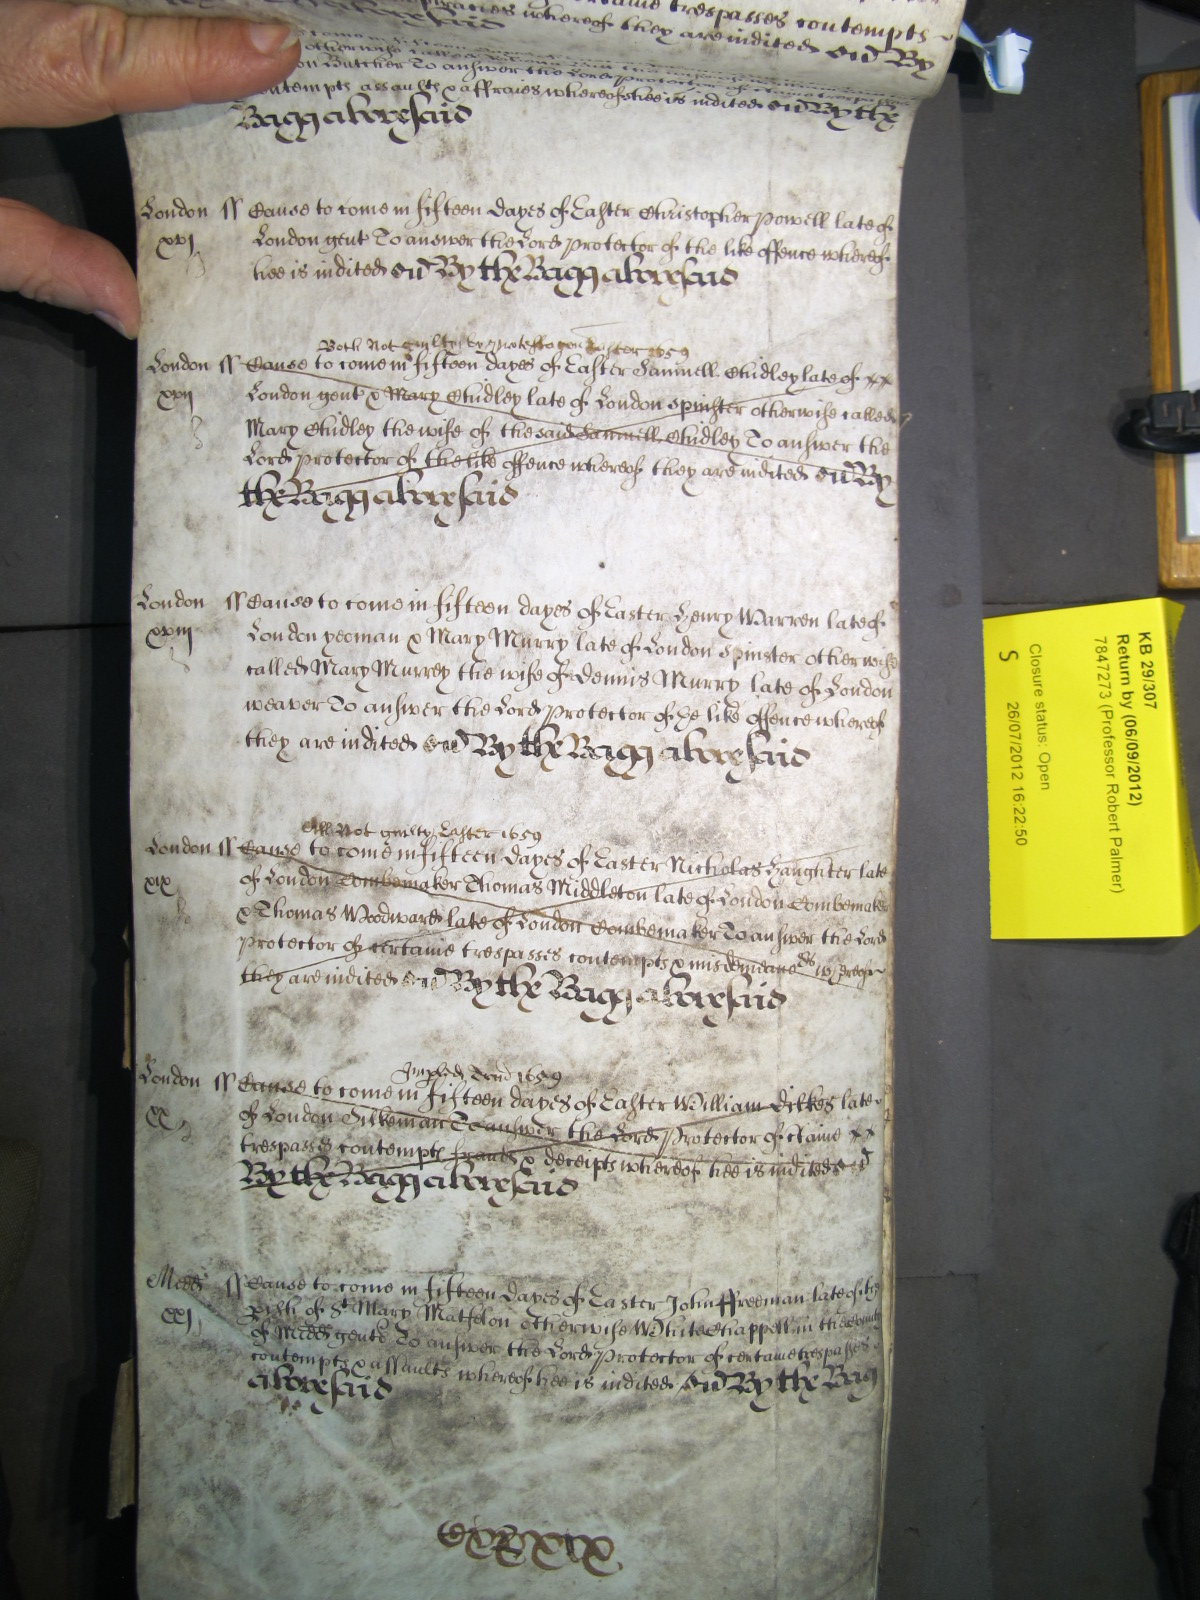 certaine trespasses contempts
whereof they are indited End By
on Butcher To answer the Lord Protector of
contempts assaults & affraies whereof hee is indited End By the
Bagg aforesaid
London ss Cause to come in fifteen dayes of Easter Christopher Powell late of
xvj London gent To answer the Lord Protector of the like offence whereof
hee is indited End By the Bagg aforesaid
Both Not guilty Easter 1659
London ss Cause to come in fifteen dayes of Easter Samuell Studley late of xx
xvij London gent & Mary Studley late of London Spinster otherwise called
Mary Studley the wife of the said Samuell Studley To answer the
Lord Protector of the like offence whereof they are indited End By
the Bagg aforesaid
London ss Cause to come in fifteen dayes of Easter Henry Warren late of
xviij London yeoman & Mary Murry late of London Spinster otherwise
called Mary Murrey the wife of Dennis Murry late of London
weaver To answer the Lord Protector of ye like offence whereof
they are indited End By the Bagg aforesaid
All Not guilty Easter 1659
London ss Cause to come in fifteen dayes of Easter Nicholas Haughter late
xix of London Combemaker Thomas Middleton late of London Combemaker
& Thomas Woodward late of London Combemaker To answer the Lord
Protector of certaine trespasses contempts & misdemeanors whereof
they are indited End By the Bagg aforesaid
1659
London ss Cause to come in fifteen dayes of Easter William Dickes late
xx of London Silkeman To answer the Lord Protector of ctaine xx
trespasses contempts frauds & deceipts whereof hee is indited End
By the Bagg aforesaid
Midds ss Cause to come in fifteen dayes of Easter John Freeman late of the
xxj pish of St Mary Matfelon otherwise Whitechappell in the County
of Midds gent To answer the Lord Protector of certaine trespasses
contempts & assaults whereof hee is indited End By the Bagg
aforesaid
KB 29/307
Return by (06/09/2012)
7847273 (Professor Robert Palmer)
Closure status: Open
S 26/07/2012 16:22:50